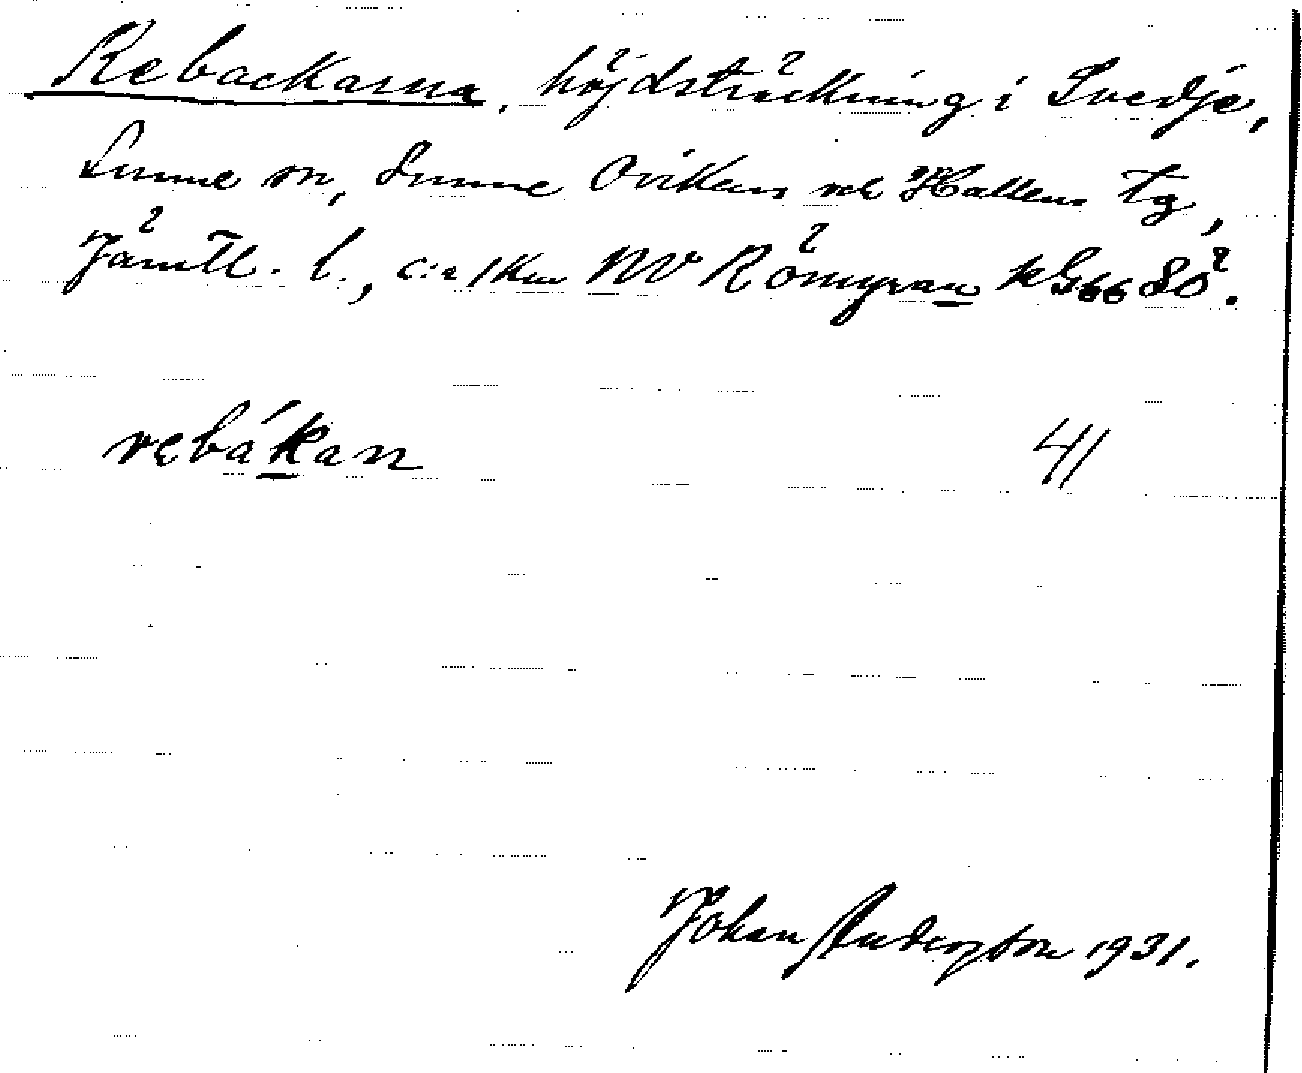 Rebackarna, höjdsträckning i Svedje,
Sunne sn, Sunne Ovikens och Hallens tg,
Jämtl. l., c:a 1 km NV Römyran k G 66 80.
rebákan 41
Johan Anderson 1931.